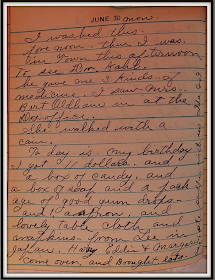 JUNE 30 mon.
I washed this
fore noon - then I was
in Town this afternoon
to see Dr. Kahle
he gave me 2 kinds of
medicine. I saw Mrs.
Bert Oldham in at the
Dox office.
She walked with a
cain.
To day is my birthday
I got 11 dollars, and
a box of candy, and
a box of soap and a pack
age of good gum drops
and 1 apron, and
lovely table cloth and
napkins from
Harry Ellen & Margaret
Come over, and brought eats.